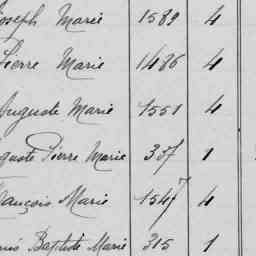 Joseph Marie 1589 4
Pierre Marie 1486 4
Auguste Marie 1551 4
Pierre Marie 337 1
François Marie 1547 4
Baptiste Marie 315 1